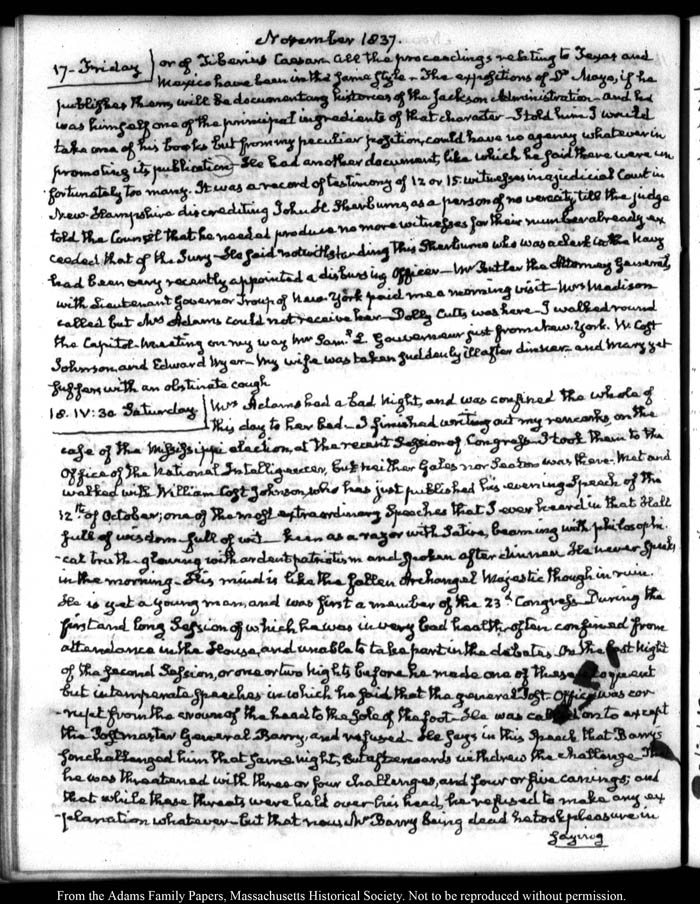 November 1837.
17 - Friday or of Tiberius Caesar. All the proceedings relating to Texas and
Mexico have been in the same style - The expositions of Dr Mayo, if he
publishes them, will be documentary histories of the Jackson Administration - and he
was himself one of the principal ingredients of that character - I told him I would
take one of his books but from my peculiar position, could have no agency whatever in
promoting its publication - He had another document, like which he said there were un
fortunately too many. It was a record of testimony of 12 or 15 witnesses in a judicial Court in
New Hampshire discrediting John H. Sherburne, as a person of no veracity, till the judge
told the Counsel that he need produce no more witnesses for their number already ex
ceeded that of the Jury - He said notwithstanding this Sherburne who was a clerk in the Navy
had been very recently appointed a disbursing Officer - Mr Butler the Attorney General,
with Lieutenant Governor Troup of New-York paid me a morning visit - Mrs Madison
called but Mrs Adams could not receive her - Dolly Cutts was here - I walked round
the Capitol - meeting on my way Mr Saml L. Gouverneur just from New York. W. Cost
Johnson, and Edward Wyer - My wife was taken suddenly ill after dinner - and Mary yet
suffers with an obstinate cough
18. IV:30 Saturday Mrs Adams had a bad Night, and was confined the whole of
this day to her bed - I finished writing out my remarks, on the
case of the Mississippi election, at the recent Session of Congress - I took them to the
Office of the National Intelligencer, but neither Gales nor Seaton was there. Met and
walked with William Cost Johnson, who has just published his evening Speech of the
12th of October; one of the most extraordinary Speeches that I ever heard in that Hall
full of wisdom - full of wit - keen as a razor with Satire, beaming with philosophi
-cal truth - glowing with ardent patriotism and spoken after dinner. He never Speaks
in the morning - His mind is like the fallen Archangel Majestic though in ruin.
He is yet a young man, and was first a member of the 23d Congress - During the
first and long Session of which he was in very bad health, often confined from
attendance in the House, and unable to take part in the debates. On the last Night
of the second Session, or one or two Nights before he made one of these eloquent
but intemperate speeches in which he said that the general Post Office was cor
-rupt from the crown of the head to the sole of the foot - He was called on to except
the Postmaster General Barry, and refused - He says in this Speech that Barry's
Son challenged him that same night, but afterwards withdrew the challenge. That
he was threatened with three or four challenges, and four or five canings; and
that while these threats were held over his head, he refused to make any ex
-planation whatever - but that now Mr Barry being dead he took pleasure in
saying
From the Adams Family Papers, Massachusetts Historical Society. Not to be reproduced without permission.